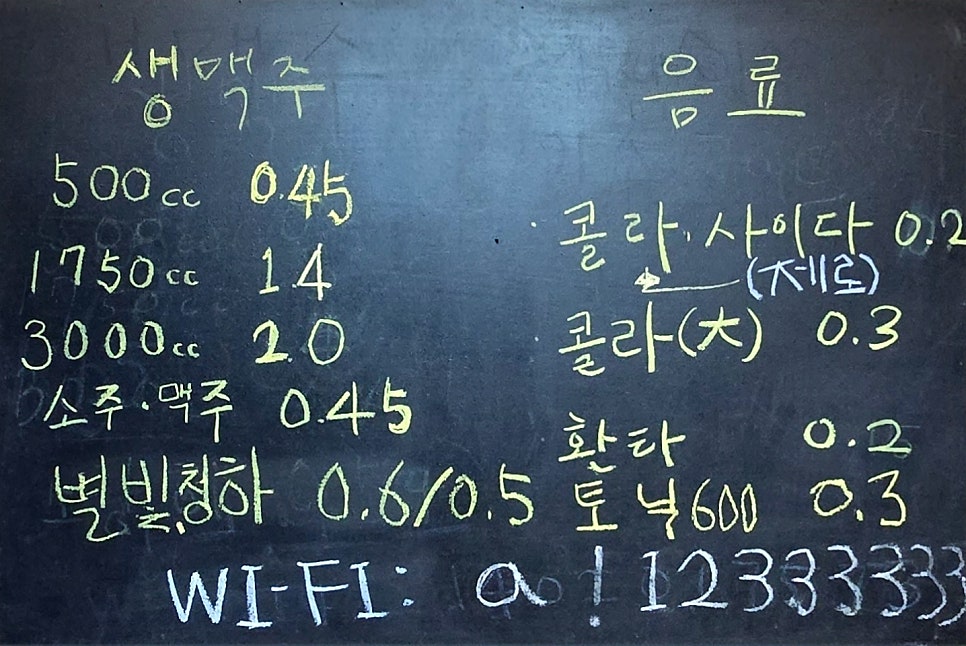 생맥주
500cc 0.45
1750cc 1.4
3000cc 2.0
소주·맥주 0.45
별빛청하 0.6/0.5
음료
콜라·사이다 0.2
(제로)
콜라(大) 0.3
환타 0.2
토닉600 0.3
WI-FI: a!123333333